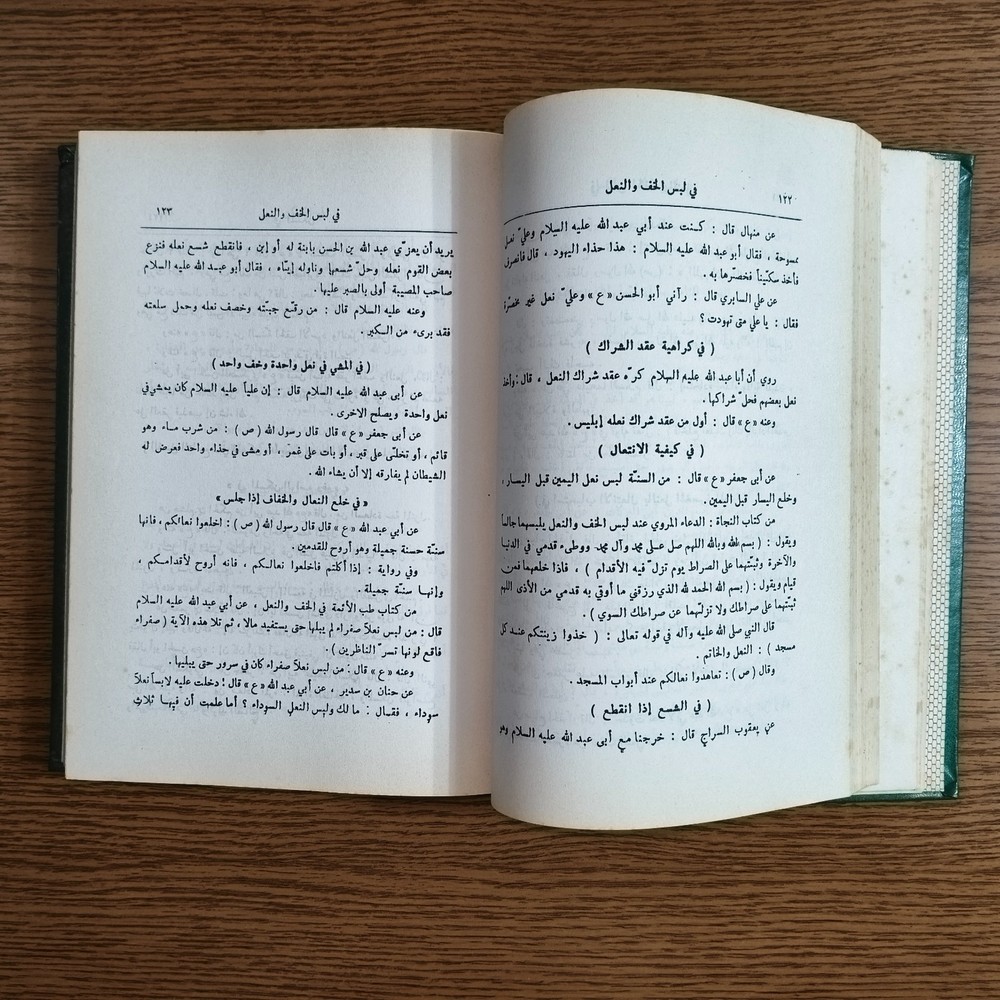 ١٢٢ في لبس الخف والنعل
عن منهال قال : كنت عند أبي عبد الله عليه السلام وعليّ نعل
ممسوحة ، فقال أبو عبد الله عليه السلام : هذا حذاء اليهود ، قال فانصرف
فأخذ سكّيناً فخصّرها به .
عن علي السابري قال : رآني أبو الحسن « ع » وعليّ نعل غير مخصّرة
فقال : يا علي متى تهودت ؟
( في كراهية عقد الشراك )
روي أن أبا عبد الله عليه السلام كره عقد شراك النعل ، قال : وأخذ
نعل بعضهم فحلّ شراكها .
وعنه « ع » قال : أول من عقد شراك نعله إبليس .
( في كيفية الانتعال )
عن أبي جعفر « ع » قال : من السنّة لبس نعل اليمين قبل اليسار ،
وخلع اليسار قبل اليمين .
من كتاب النجاة : الدعاء المروي عند لبس الخف والنعل يلبسهما جالساً
ويقول : ( بسم الله وبالله اللهم صل على محمد وآل محمد ووطىء قدمي في الدنيا
والآخرة وثبّتهما على الصراط يوم تزلّ فيه الأقدام ) ، فاذا خلعهما فمن
قيام ويقول : ( بسم الله الحمد لله الذي رزقني ما أوقي به قدمي من الأذى اللهم
ثبّتهما على صراطك ولا تزلّهما عن صراطك السوي ) .
قال النبي صلى الله عليه وآله في قوله تعالى : ( خذوا زينتكم عند كل
مسجد ) : النعل والخاتم .
وقال ( ص ) : تعاهدوا نعالكم عند أبواب المسجد .
( في الشسع إذا انقطع )
عن يعقوب السراج قال : خرجنا مع أبى عبد الله عليه السلام وهو
في لبس الخف والنعل ١٢٣
يريد أن يعزّي عبد الله بن الحسن بابنة له أو إبن ، فانقطع شسع نعله فنزع
بعض القوم نعله وحلّ شسعها وناوله إيّاه ، فقال أبو عبد الله عليه السلام
صاحب المصيبة أولى بالصبر عليها .
وعنه عليه السلام قال : من رقّع جبّته وخصف نعله وحمل سلعته
فقد برىء من الكبر .
( في المشي في نعل واحدة وخف واحد )
عن أبى عبد الله عليه السلام قال : إن علياً عليه السلام كان يمشي في
نعل واحدة ويصلح الاخرى .
عن أبى جعفر « ع » قال قال رسول الله ( ص ) : من شرب ماء وهو
قائم ، أو تخلّى على قبر ، أو بات على غمر ، أو مشى في حذاء واحد فعرض له
الشيطان لم يفارقه إلا أن يشاء الله .
« في خلع النعال والخفاف إذا جلس »
عن أبي عبد الله « ع » قال قال رسول الله ( ص ) : اخلعوا نعالكم ، فانها
سنّة حسنة جميلة وهو أروح للقدمين .
وفي رواية : إذا أكلتم فاخلعوا نعالكم ، فانه أروح لأقدامكم ،
وإنها سنّة جميلة .
من كتاب طب الأئمة في الخف والنعل ، عن أبي عبد الله عليه السلام
قال : من لبس نعلاً صفراء لم يبلها حتى يستفيد مالا ، ثم تلا هذه الآية ( صفراء
فاقع لونها تسرّ الناظرين ) .
وعنه « ع » قال : من لبس نعلاً صفراء كان في سرور حتى يبليها .
عن حنان بن سدير ، عن أبي عبد الله « ع » قال : دخلت عليه لابساً نعلاً
سوداء ، فقال : ما لك ولبس النعل السوداء ؟ أما علمت أن فيها ثلاث